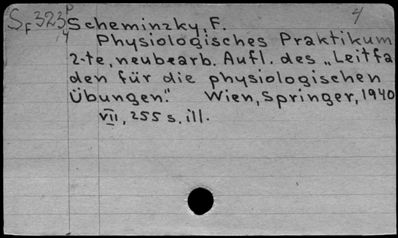 SF323P Scheminzky, F. 4
4
Physiologisches Praktikum
2-te, neubearb. Aufl. des „Leitfa
den für die physiologischen
Übungen." Wien, Springer, 1940
VII, 255 s. ill.